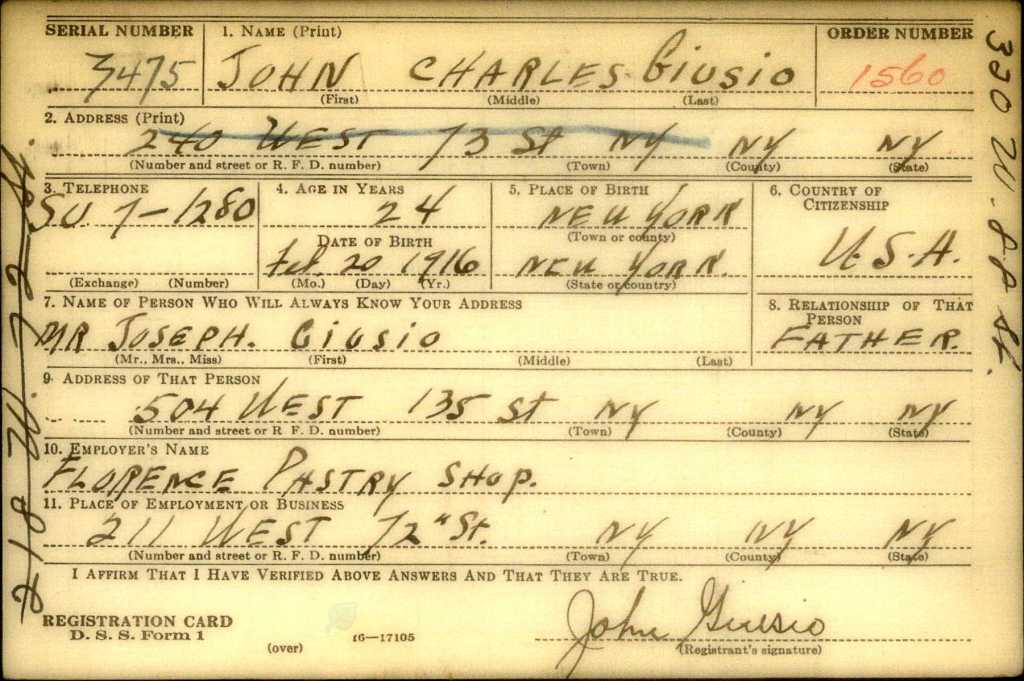 SERIAL NUMBER 1. NAME (Print) ORDER NUMBER
3475 JOHN CHARLES GIUSIO 1560
(First) (Middle) (Last)
2. ADDRESS (Print)
240 WEST 73 St NY NY NY
(Number and street or R. F. D. number) (Town) (County) (State)
3. TELEPHONE 4. AGE IN YEARS 5. PLACE OF BIRTH 6. COUNTRY OF CITIZENSHIP
SU. 7-1280 24 NEW YORK
(Town or county)
DATE OF BIRTH U.S.A.
Feb. 20 1916 NEW YORK.
(Exchange) (Number) (Mo.) (Day) (Yr.) (State or country)
7. NAME OF PERSON WHO WILL ALWAYS KNOW YOUR ADDRESS 8. RELATIONSHIP OF THAT PERSON
MR JOSEPH. GIUSIO FATHER.
(Mr., Mrs., Miss) (First) (Middle) (Last)
9. ADDRESS OF THAT PERSON
504 WEST 135 St NY NY NY
(Number and street or R. F. D. number) (Town) (County) (State)
10. EMPLOYER'S NAME
FLORENCE PASTRY SHOP.
11. PLACE OF EMPLOYMENT OR BUSINESS
211 WEST 72" St. NY NY NY
(Number and street or R. F. D. number) (Town) (County) (State)
I AFFIRM THAT I HAVE VERIFIED ABOVE ANSWERS AND THAT THEY ARE TRUE.
REGISTRATION CARD
D. S. S. Form 1 16—17105 John Giusio
(over) (Registrant's signature)
320 W. 88 St.
218 W. 72 St.